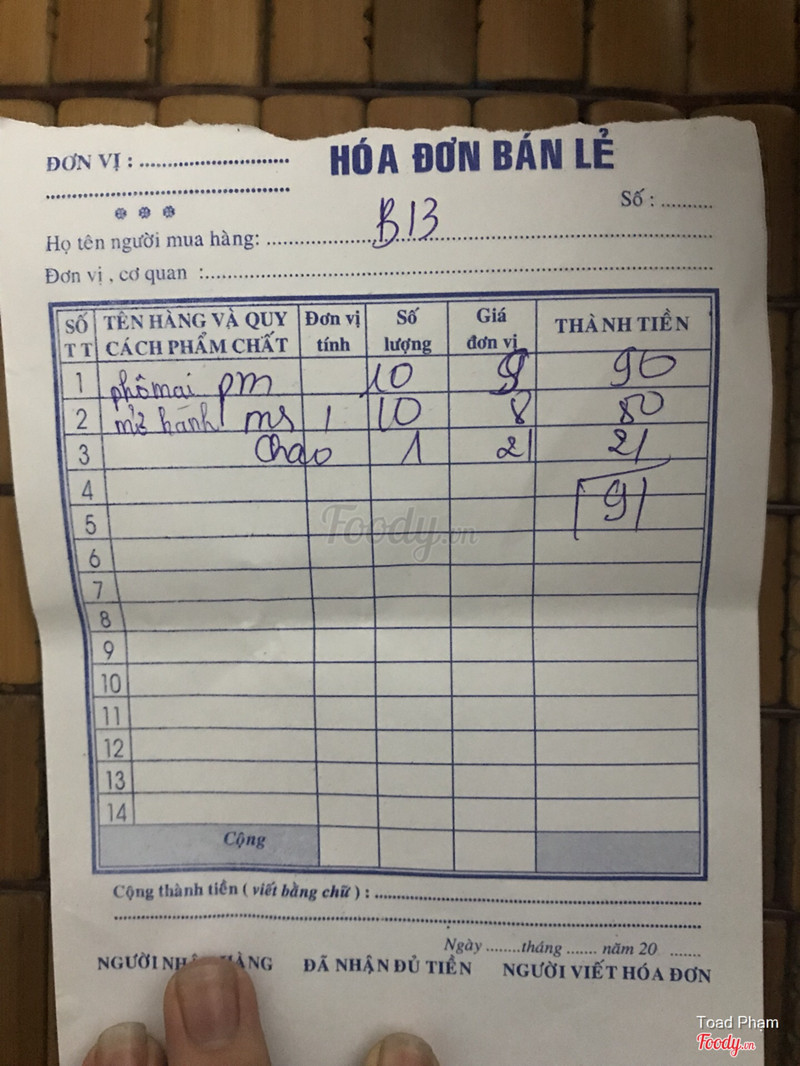 HÓA ĐƠN BÁN LẺ
ĐƠN VỊ :
Số :
Họ tên người mua hàng: B13
Đơn vị , cơ quan :
SỐ TT TÊN HÀNG VÀ QUY CÁCH PHẨM CHẤT Đơn vị tính Số lượng Giá đơn vị THÀNH TIỀN
1 phômai pm 10 9 90
2 mỡ hành 10 8 80
3 Chao 1 21 21
4
191
5
6
7
8
9
10
11
12
13
14
Cộng
Foody.vn
Cộng thành tiền ( viết bằng chữ ) :
Ngày ........tháng ....... năm 20 .......
NGƯỜI NHẬN HÀNG ĐÃ NHẬN ĐỦ TIỀN NGƯỜI VIẾT HÓA ĐƠN
Toad Phạm
Foody.vn